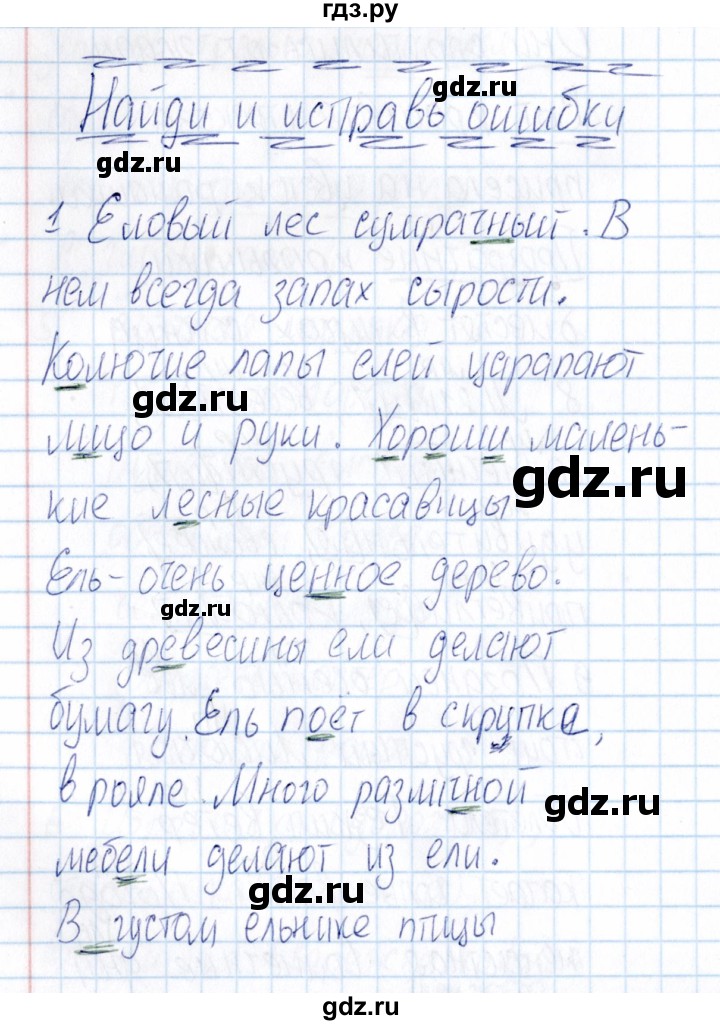 гдз.ру
Найди и исправь ошибки
gdz.ru
gdz.ru
1 Еловый лес сумрачный. В
нем всегда запах сырости.
Колючие лапы елей царапают
gdz.ru
лицо и руки. Хороши малень-
gdz.ru
кие лесные красавицы
Ель - очень ценное дерево.
gdz.ru
Из древесины ели делают
бумагу. Ель поёт в скрипке,
в рояле. Много различной
gdz.ru
мебели делают из ели.
gdz.ru
В густом ельнике птицы
gdz.ru